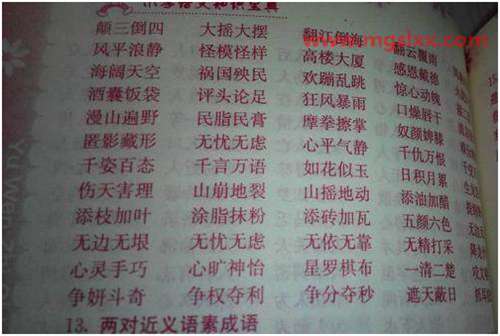 颠三倒四 大摇大摆 翻江倒海
风平浪静 怪模怪样 高楼大厦 感恩戴德
海阔天空 祸国殃民 欢蹦乱跳 惊心动魄
酒囊饭袋 评头论足 狂风暴雨 口燥唇干
漫山遍野 民脂民膏 摩拳擦掌 奴颜婢膝
匿影藏形 无忧无虑 心平气静 千仇万恨
千姿百态 千言万语 如花似玉 日积月累
伤天害理 山崩地裂 山摇地动 添油加醋
添枝加叶 涂脂抹粉 添砖加瓦 五颜六色
无边无垠 无忧无虑 无依无靠 无精打采
心灵手巧 心旷神怡 星罗棋布 一清二楚
争妍斗奇 争权夺利 争分夺秒 遮天蔽日
13. 两对近义语素成语